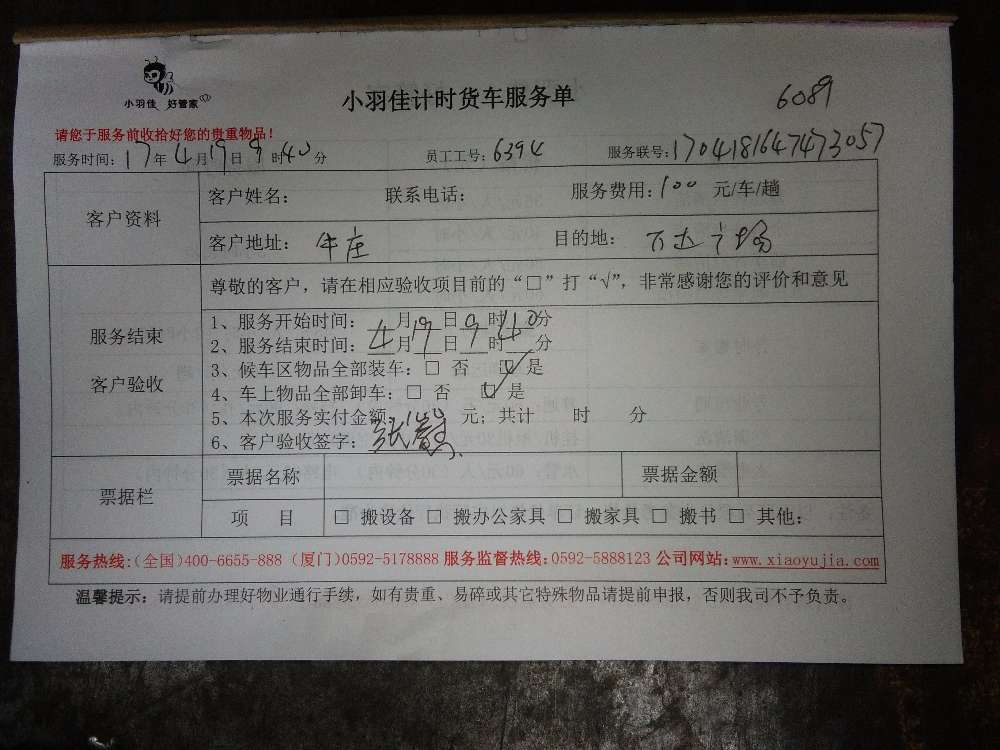 小羽佳 好管家
小羽佳计时货车服务单
6089
请您于服务前收拾好您的贵重物品！
服务时间：17年4月19日9时40分 员工工号：6394 服务联号：1704181647473057
客户资料
客户姓名： 联系电话： 服务费用：100 元/车/趟
客户地址：牛庄 目的地：万达广场
服务结束
客户验收
尊敬的客户，请在相应验收项目前的“□”打“√”，非常感谢您的评价和意见
1、服务开始时间：4月19日9时40分
2、服务结束时间：__月__日__时__分
3、候车区物品全部装车：□ 否 □ 是
4、车上物品全部卸车：□ 否 ☑ 是
5、本次服务实付金额： 元；共计 时 分
6、客户验收签字：
票据栏
票据名称 票据金额
项 目 □ 搬设备 □ 搬办公家具 □ 搬家具 □ 搬书 □ 其他：
服务热线：(全国)400-6655-888 (厦门)0592-5178888 服务监督热线：0592-5888123 公司网站：www.xiaoyujia.com
温馨提示：请提前办理好物业通行手续，如有贵重、易碎或其它特殊物品请提前申报，否则我司不予负责。